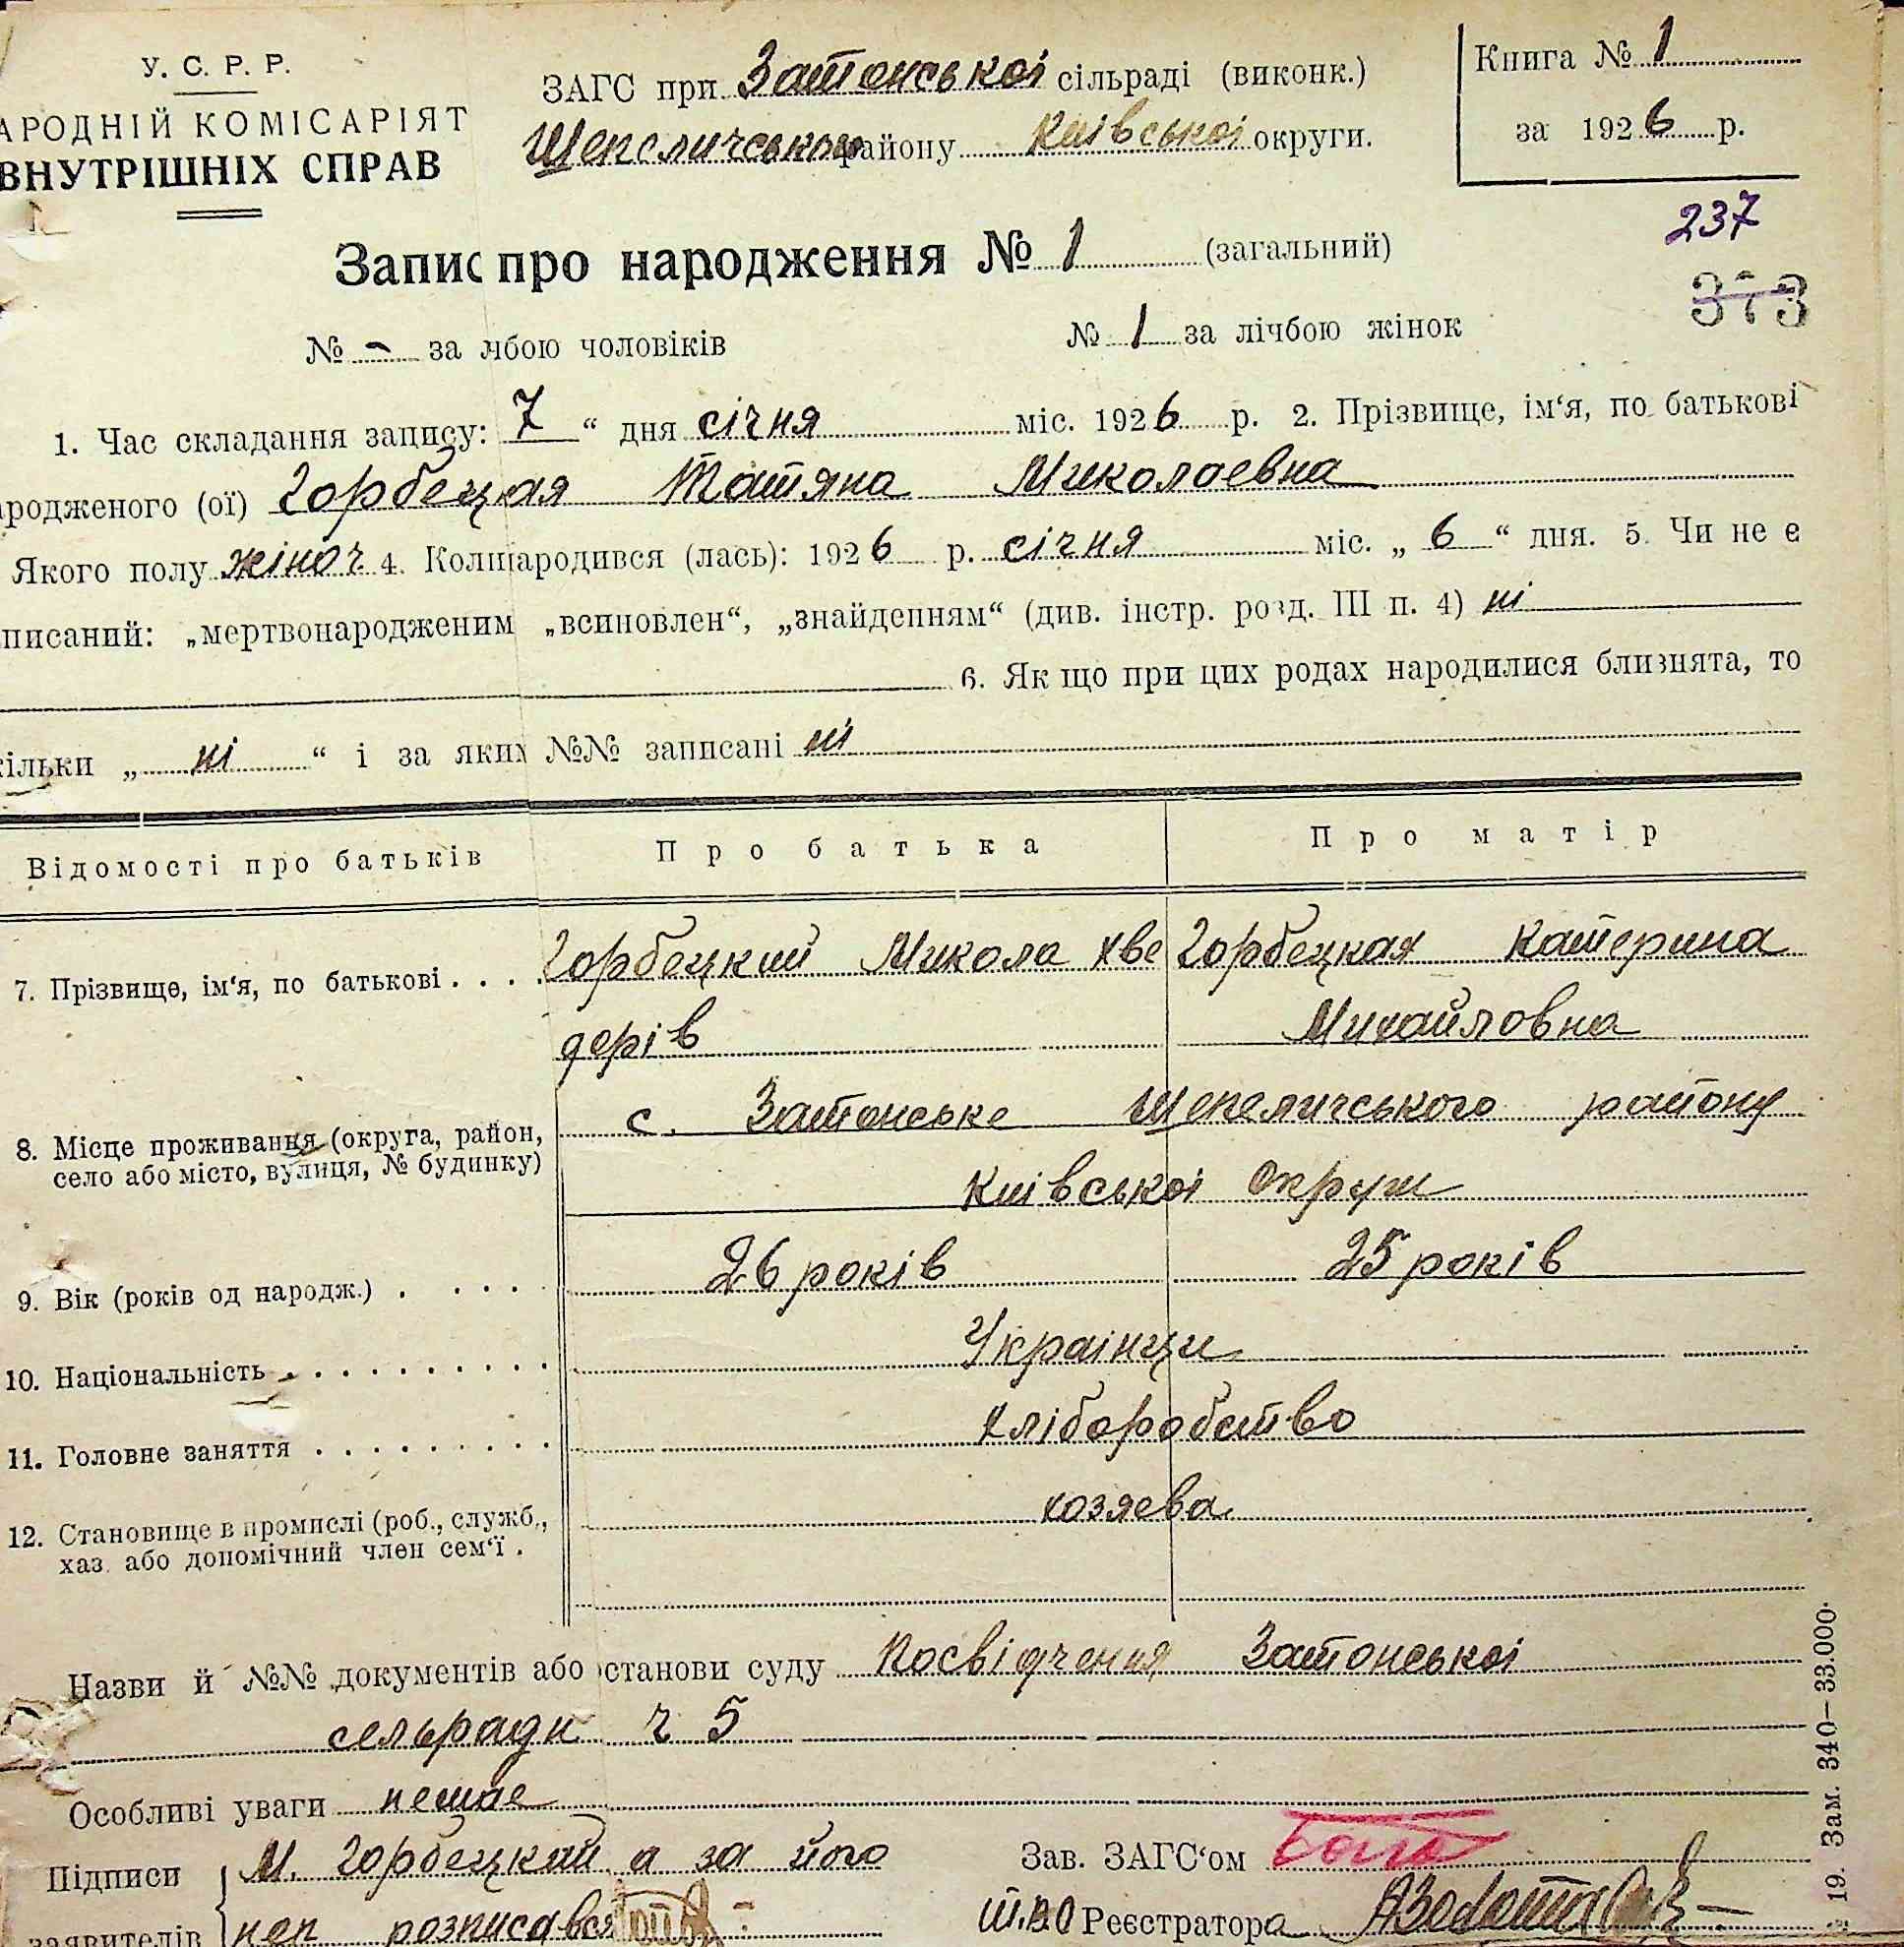 У. С. Р. Р.
АРОДНІЙ КОМІСАРІЯТ
ВНУТРІШНІХ СПРАВ
ЗАГС при Затонської сільраді (виконк.)
Шепеличського району Київської округи.
Книга № 1
за 1926 р.
237
373
Запис про народження № 1 (загальний)
№ - за чбою чоловіків № 1 за лічбою жінок
1. Час складання запису: 7 “ дня січня міс. 1926 р. 2. Прізвище, ім‘я, по батькові
ародженого (ої) Горбецкая Татяна Миколаевна
Якого полу жіноч 4. Коли народився (лась): 1926 р. січня міс. „ 6 “ дня. 5. Чи не є
писаний: „мертвонародженим „всиновлен“, „знайденням“ (див. інстр. розд. III п. 4) ні
6. Як що при цих родах народилися близнята, то
кільки „ ні “ і за яким №№ записані ні
Відомості про батьків Про батька Про матір
7. Прізвище, ім‘я, по батькові . . . . Горбецкий Микола Хве Горбецкая Катерина
дерів Михайловна
8. Місце проживання (округа, район, село або місто, вулиця, № будинку) с. Затонське Шепеличського району
Київської Округи
9. Вік (років од народж.) . . . . 26 років 25 років
10. Національність . . . . . . . . . . Українци
11. Головне заняття . . . . . . . . . . хліборобство
12. Становище в промислі (роб., служб., хаз. або допомічний член сем‘ї . хозяева
Назви й №№ документів або станови суду Посвідчення Затонської
сельради ч 5
Особливі уваги немае
Підписи М. Горбецкий а за його
заявителів неп розписався
Зав. ЗАГС‘ом
т.в.о Реєстратора
19. Зам. 340—33.000.